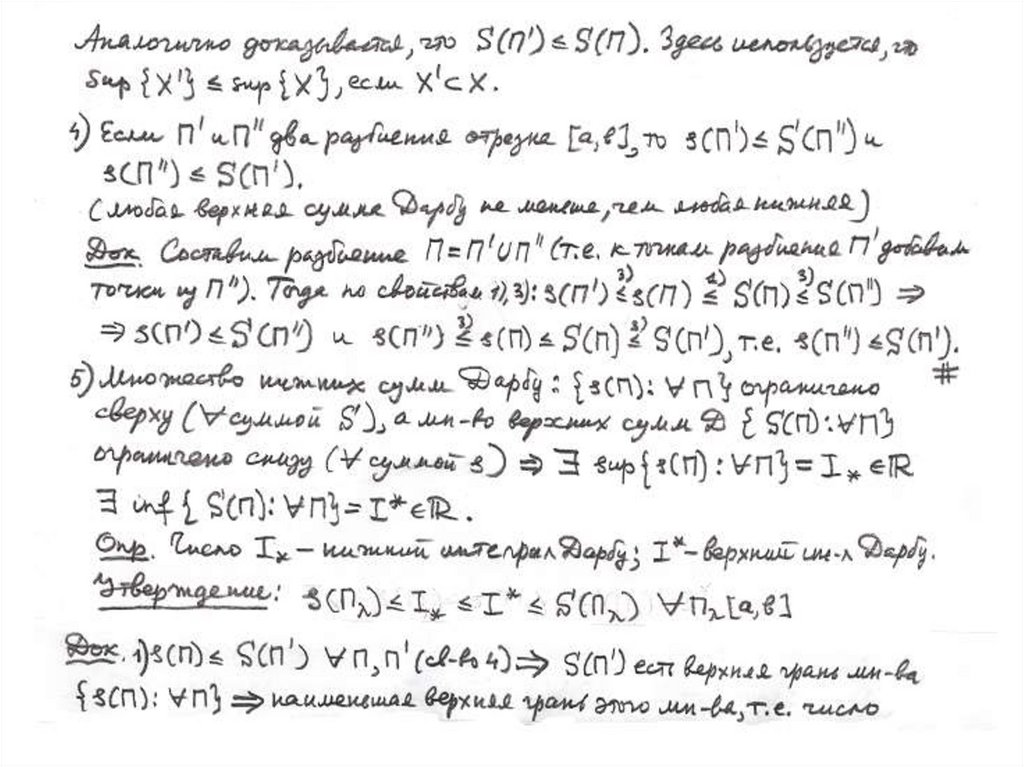 Аналогично доказывается, что S(П') ≤ S(П). Здесь используется, что
sup {X'} ≤ sup {X}, если X' ⊂ X.
4) Если П' и П'' два разбиения отрезка [a,b], то s(П') ≤ S(П'') и
s(П'') ≤ S(П').
(любая верхняя сумма Дарбу не меньше, чем любая нижняя)
Док. Составим разбиение П = П' ∪ П'' (т.е. к точкам разбиения П' добавим
точки из П''). Тогда по свойствам 1), 3): s(П') ≤³⁾ s(П) ≤¹⁾ S(П) ≤³⁾ S(П'') ⇒
⇒ s(П') ≤ S(П'') и s(П'') ≤³⁾ s(П) ≤ S(П) ≤³⁾ S(П'), т.е. s(П'') ≤ S(П').
#
5) Множество нижних сумм Дарбу: {s(П): ∀П} ограничено
сверху (∀ суммой S), а мн-во верхних сумм Д {S(П): ∀П}
ограничено снизу (∀ суммой s) ⇒ ∃ sup{s(П): ∀П} = I_* ∈ ℝ
∃ inf {S(П): ∀П} = I* ∈ ℝ.
Опр. Число I_* – нижний интеграл Дарбу; I* – верхний ин-л Дарбу.
Утверждение: s(П_λ) ≤ I_* ≤ I* ≤ S(П_λ) ∀П_λ[a,b]
Док. 1) s(П) ≤ S(П') ∀П, П' (св-во 4) ⇒ S(П') есть верхняя грань мн-ва
{s(П): ∀П} ⇒ наименьшая верхняя грань этого мн-ва, т.е. число